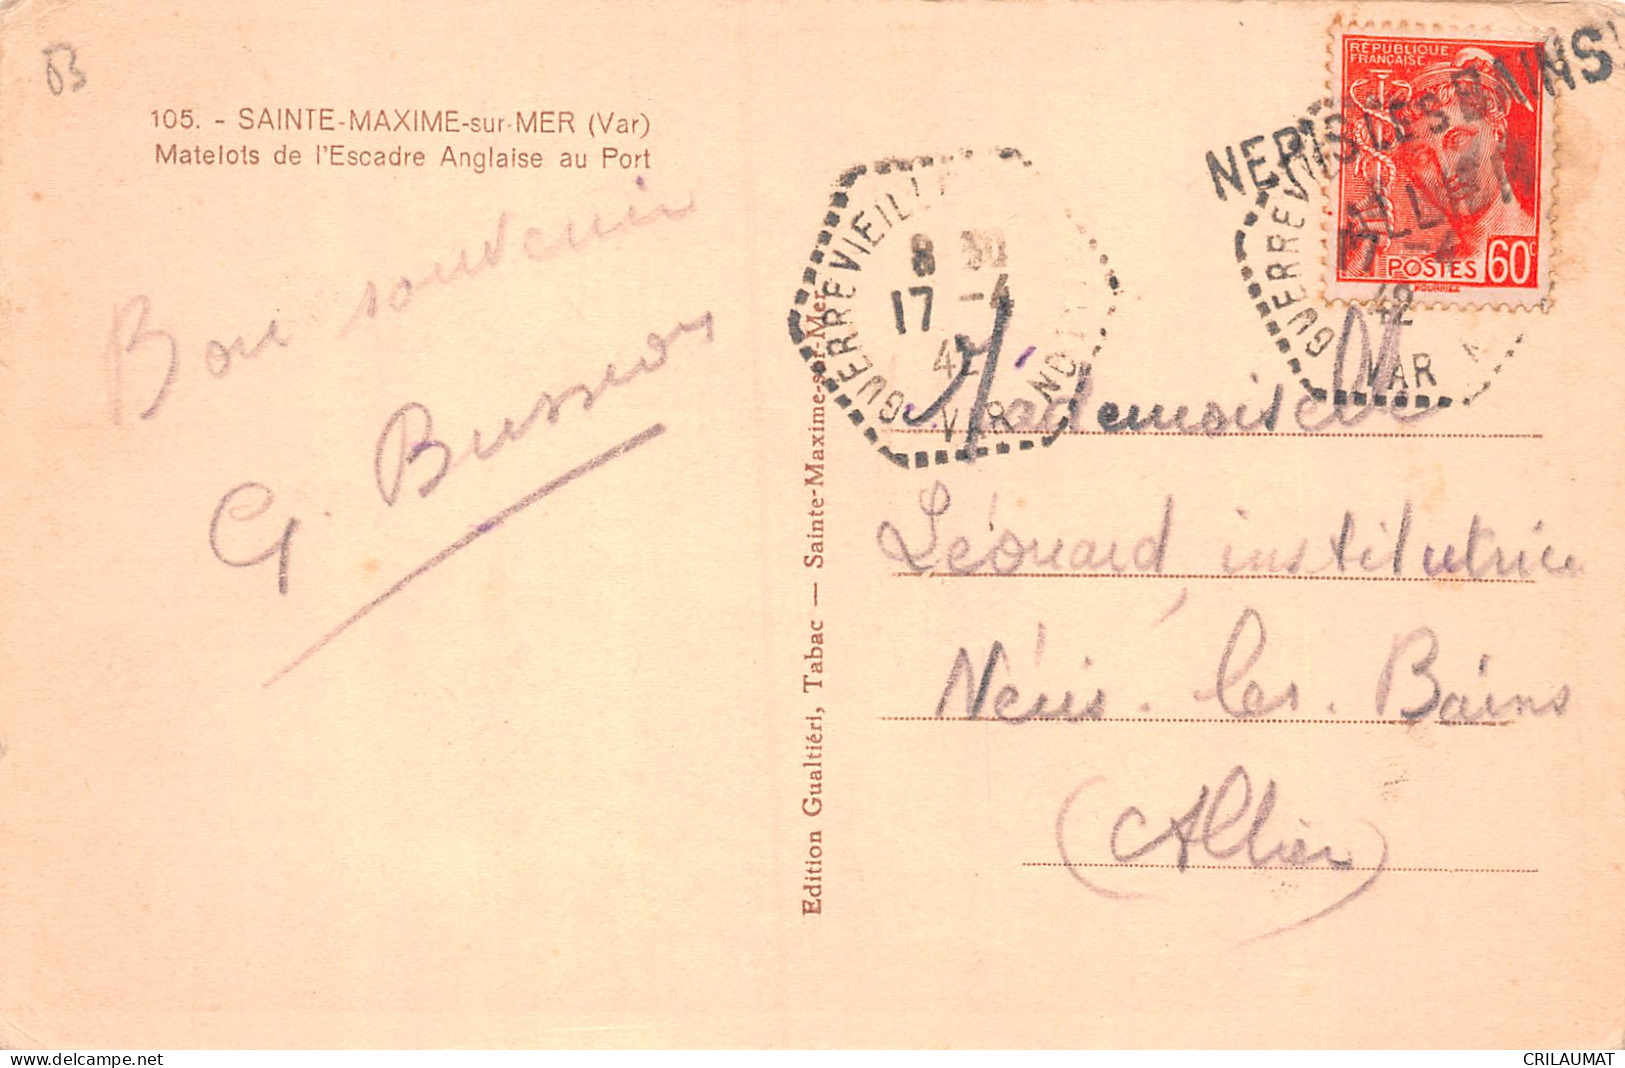 105. - SAINTE-MAXIME-sur-MER (Var)
Matelots de l'Escadre Anglaise au Port
Bon souvenir
G. Busson
Edition Gualtiéri, Tabac — Sainte-Maxime-sur-Mer
GUERREVIEILLE
8 30
17 -4
42
VAR
NERIS LES BAINS
ALLIER
RÉPUBLIQUE
FRANÇAISE
POSTES 60c
GUERREVIEILLE
17 -4
42
VAR
Mademoiselle
Léonard institutrice
Néris-les-Bains
(Allier)
www.delcampe.net
CRILAUMAT